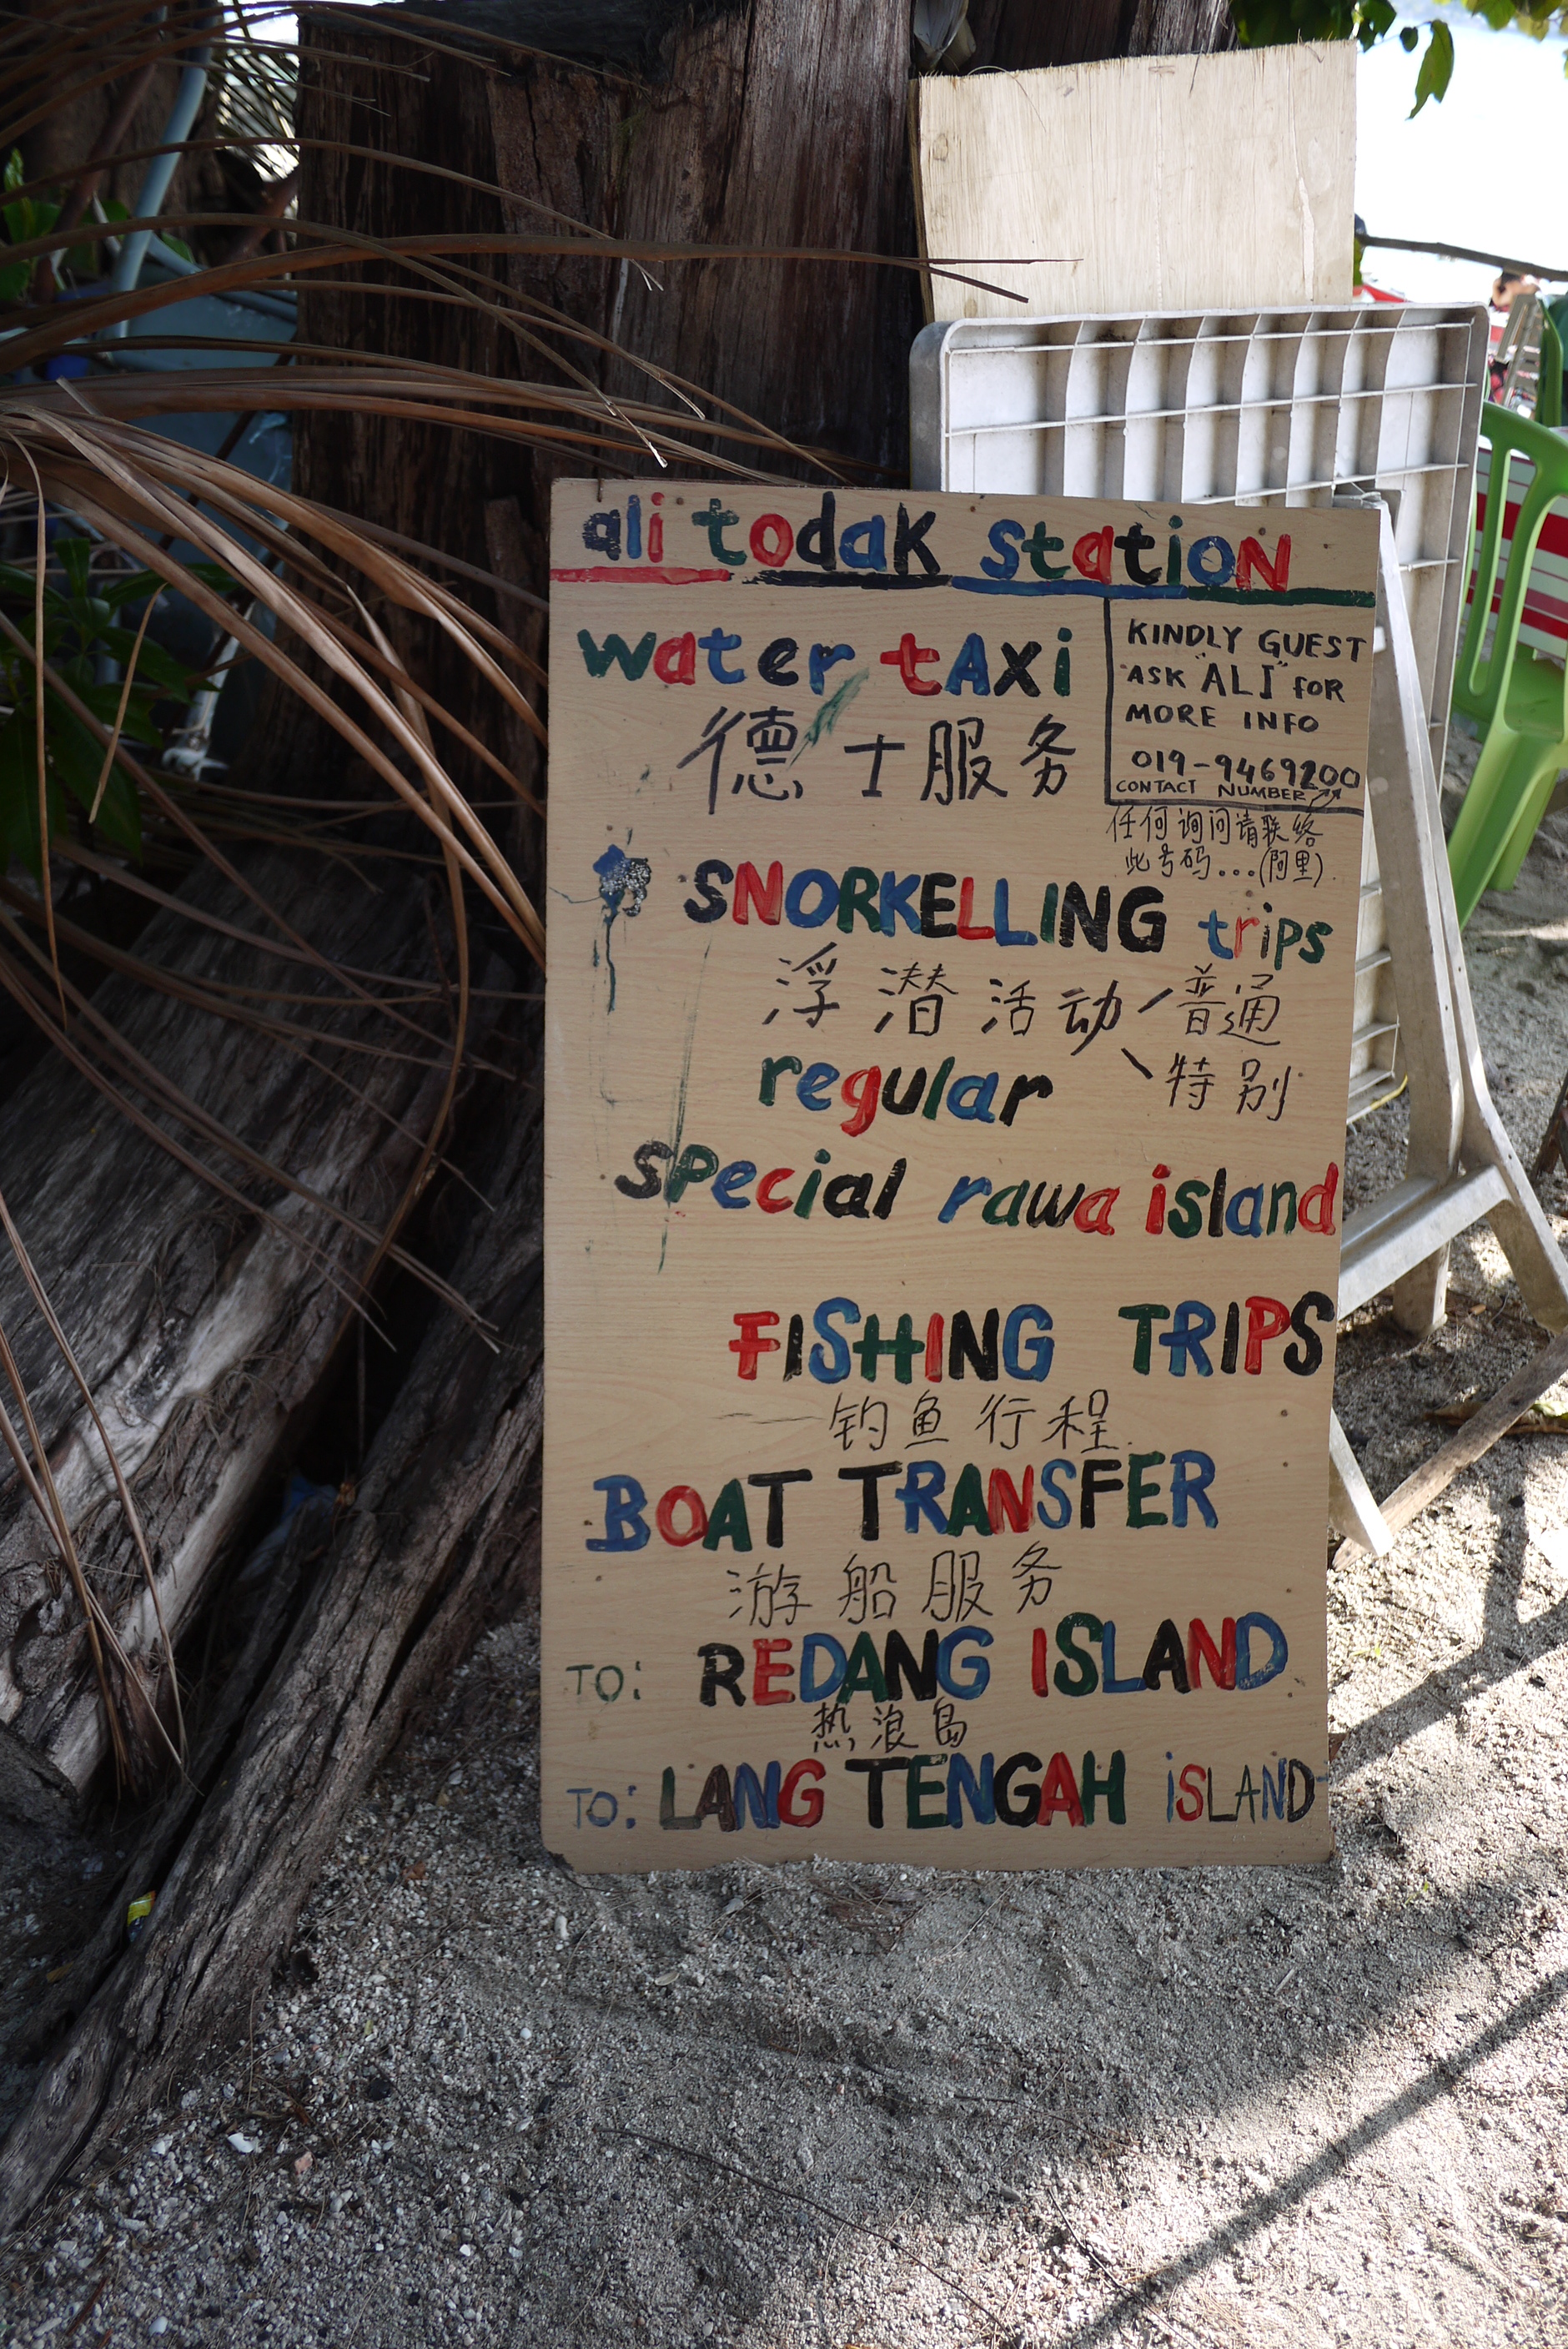 ali todak station
water tAxi
德士服务
KINDLY GUEST
ASK "ALI" FOR
MORE INFO
019-9469200
CONTACT NUMBER
任何询问请联络
此号码...(阿里)
SNORKELLING trips
浮潜活动 普通
特别
regular
special rawa island
FISHING TRIPS
钓鱼行程
BOAT TRANSFER
游船服务
TO: REDANG ISLAND
热浪岛
TO: LANG TENGAH iSLAND